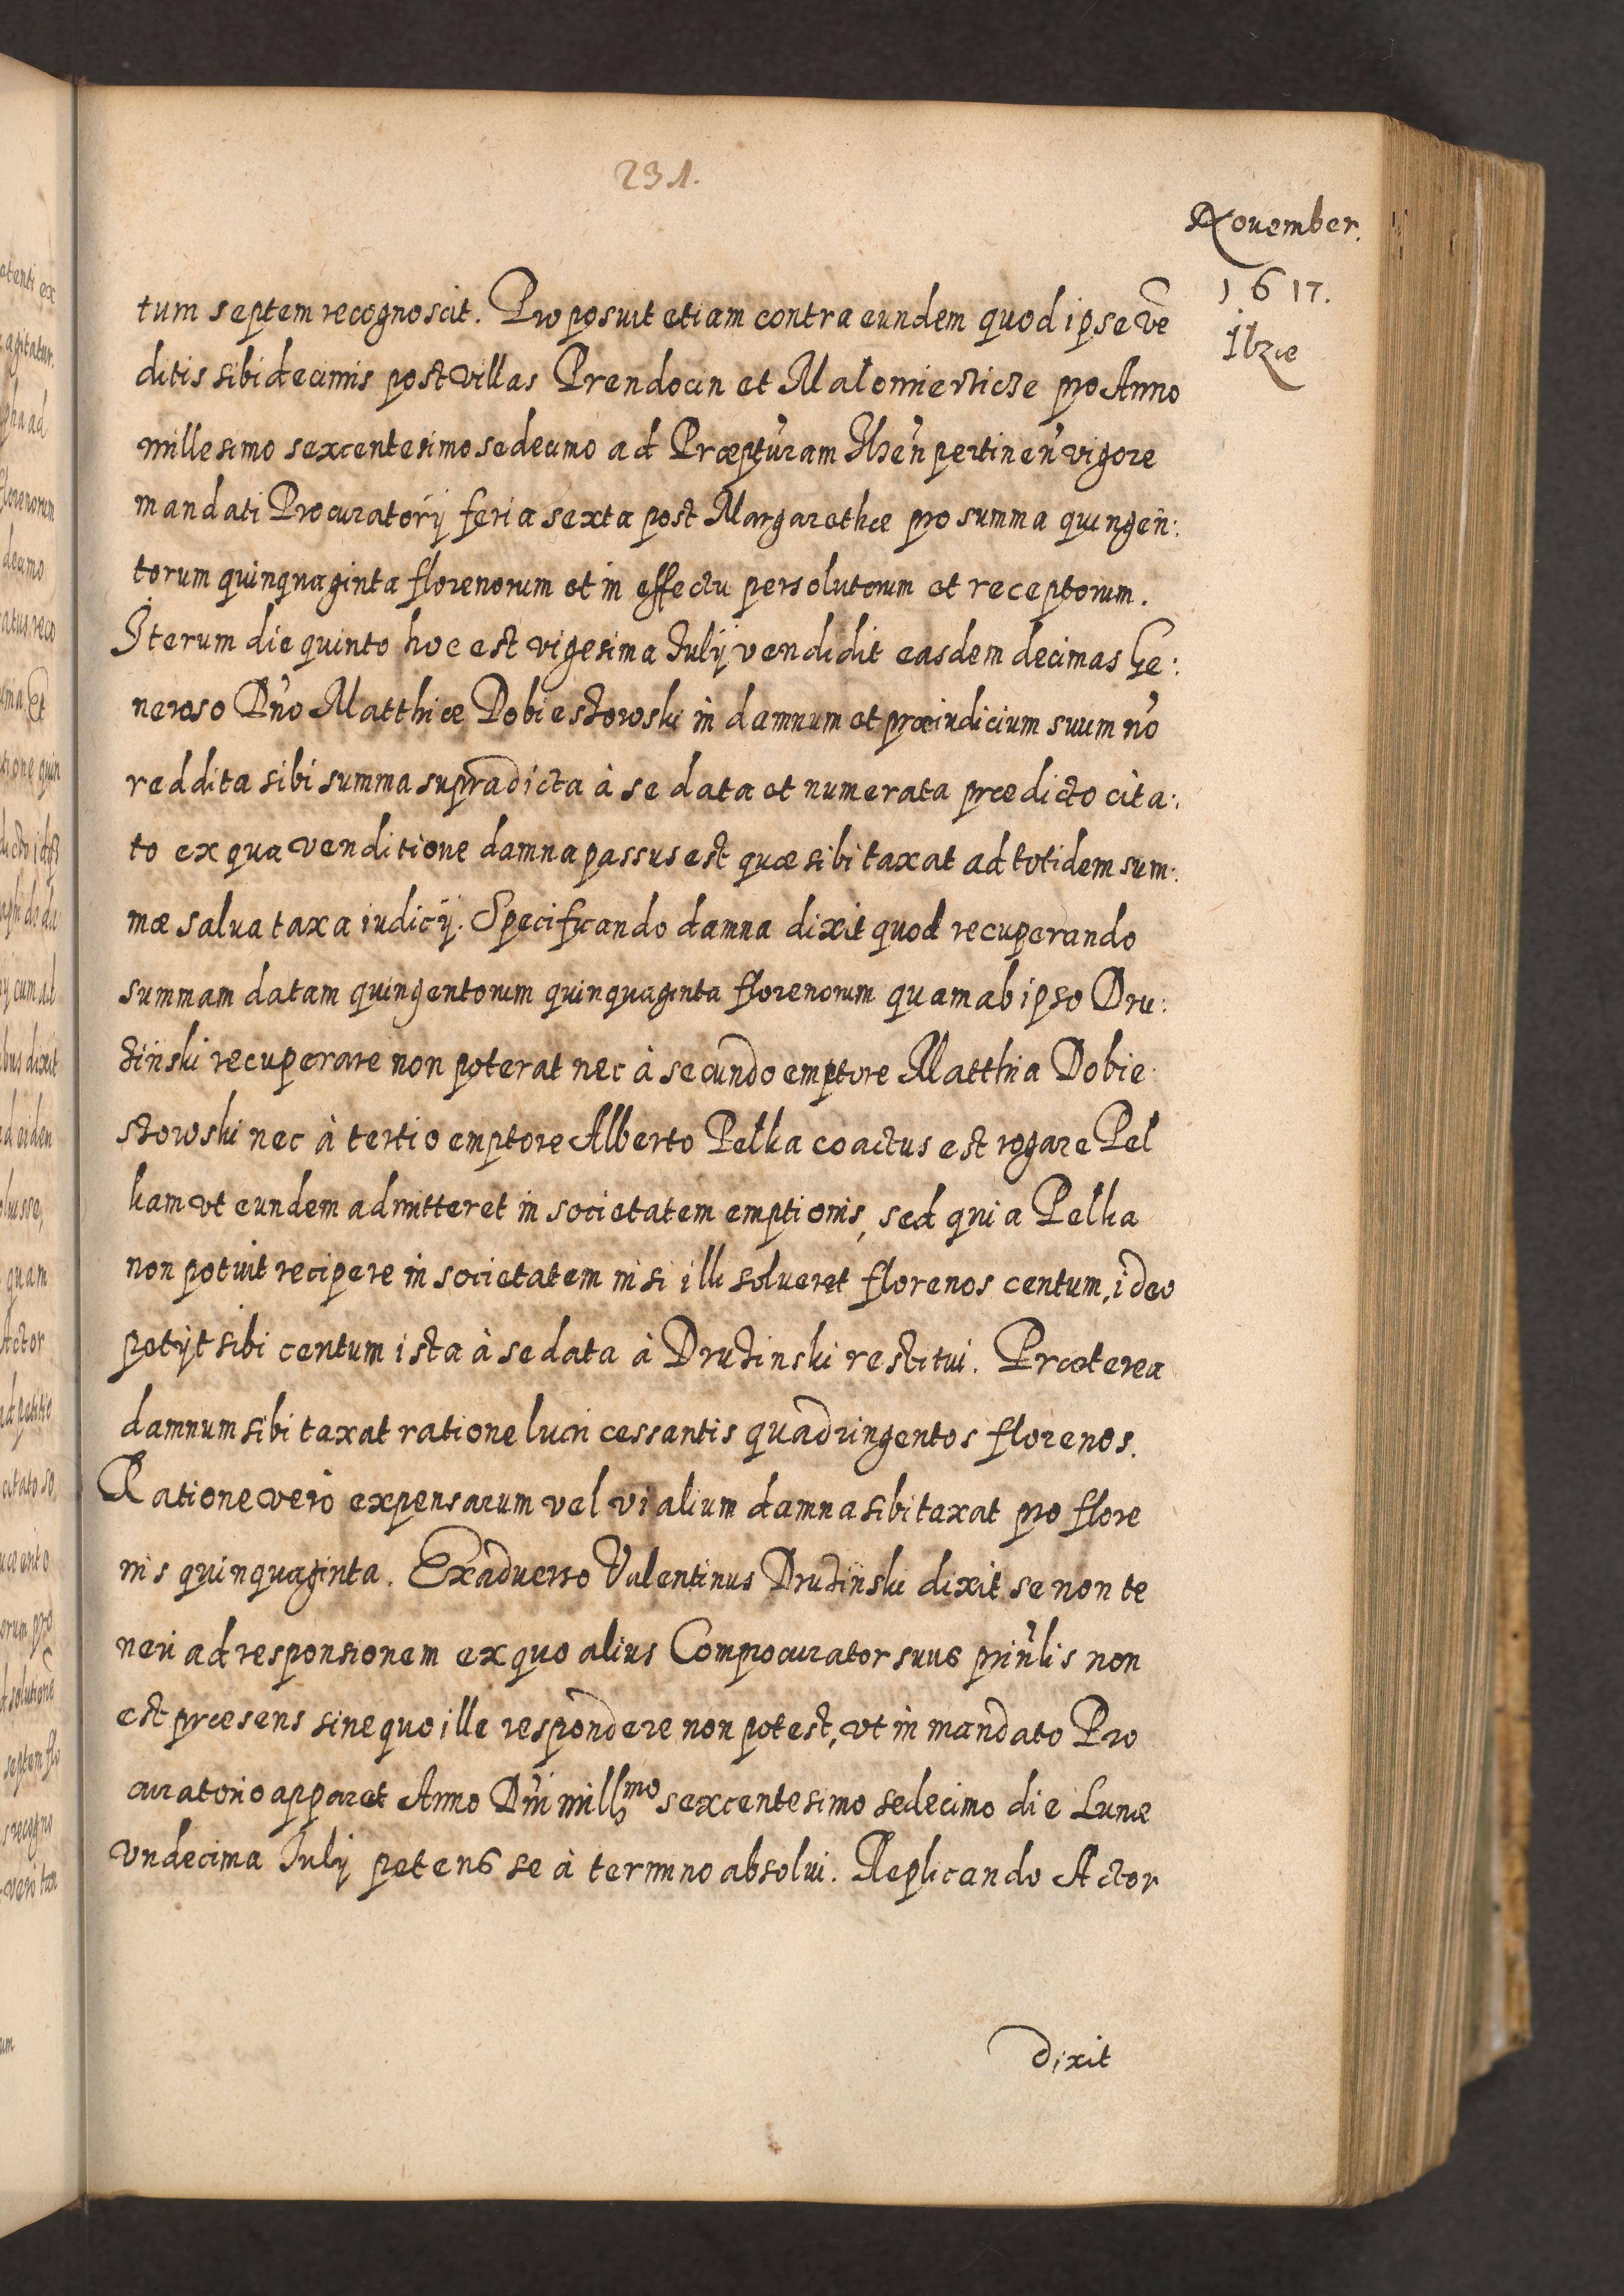 231.
November.
1617.
Ilzæ
tum septem recognoscit. Proposuit etiam contra eundem quod ipse vē
ditis sibi decimis post villas Prendocin et Malomierzicze pro Anno
millesimo sexcentesimo sedecimo ad Præpturam pertineñ vigore
mandati Procuratorij feria sexta post Margarethæ pro summa quingen:
torum quinquaginta florenorum et in effectu persolutorum et receptorum.
Iterum die quinto hoc est vigesima Julij vendidit easdem decimas Ge:
neroso Dño Matthiæ Dobiestowski in damnum et præiudicium suum nõ
reddita sibi summa supradicta à se data et numerata prædicto cita:
to ex qua venditione damna passus est quæ sibi taxat ad totidem sum:
mæ salua taxa iudicij. Specificando damna dixit quod recuperando
summam datam quingentorum quinquaginta florenorum quam ab ipso Dru:
żinski recuperare non poterat nec à secundo emptore Matthia Dobie
stowski nec à tertio emptore Alberto Pelka coactus est rogare Pel
kam vt eundem admitteret in societatem emptionis, sed quia Pelka
non potuit recipere in societatem nisi illi solueret florenos centum, ideo
petijt sibi centum ista à se data à Drużinski restitui. Præterea
damnum sibi taxat ratione lucri cessantis quadringentos florenos.
Ratione vero expensarum vel vialium damna sibi taxat pro flore
nis quinquaginta. Exaduerso Valentinus Drużinski dixit se non te
neri ad responsionem ex quo alius Comprocurator suus prinlis non
est præsens sine quo ille respondere non potest, vt in mandato Pro
curatorio apparet Anno Dñi mill^mo sexcentesimo sedecimo die Lunæ
vndecima Julij petens se à termino absolui. Replicando Actor
dixit